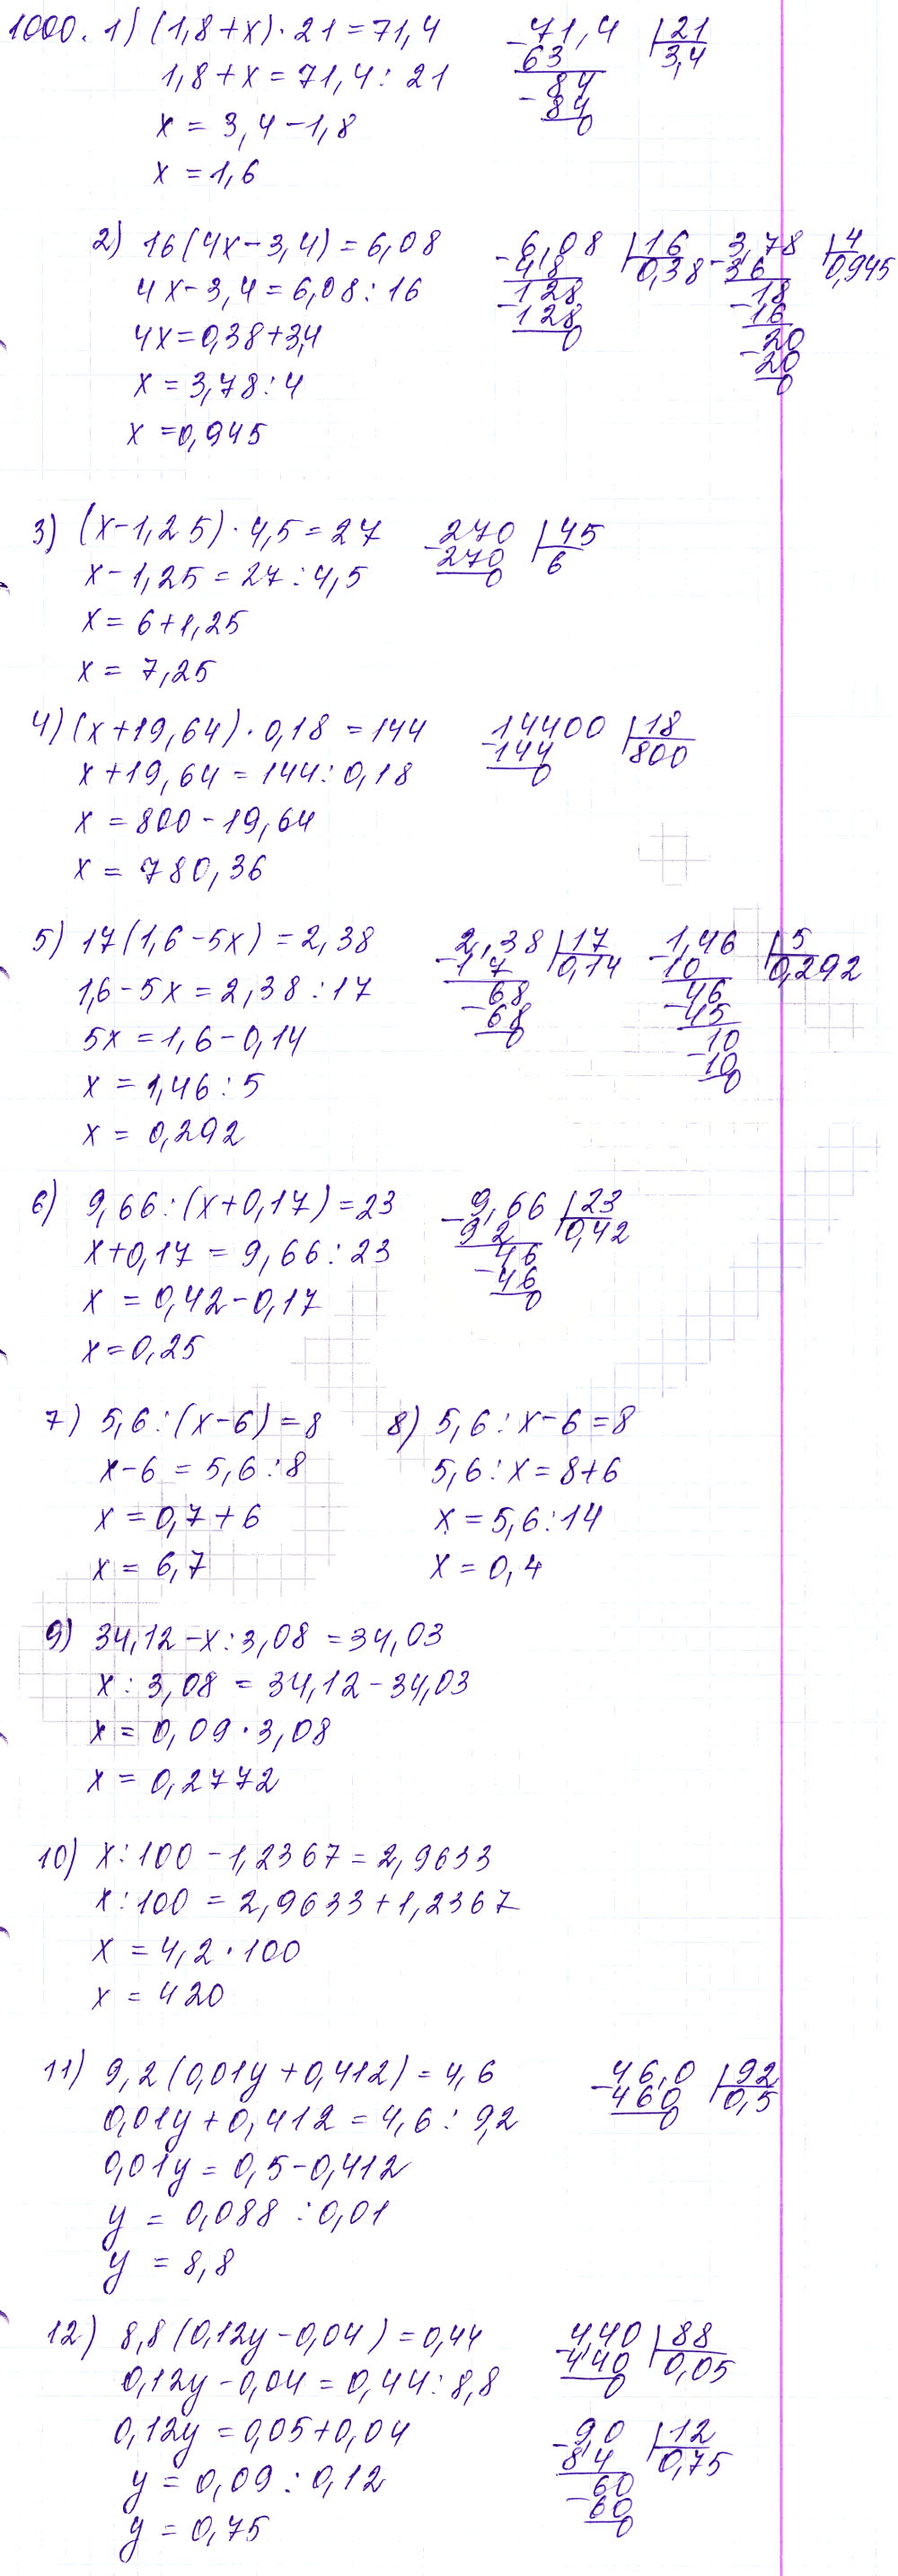 1000. 1) (1,8+x)·21=71,4
1,8+x=71,4:21
x=3,4-1,8
x=1,6
-71,4 |21
63 3,4
84
-84
0
2) 16(4x-3,4)=6,08
4x-3,4=6,08:16
4x=0,38+3,4
x=3,78:4
x=0,945
-6,08 |16
4 8 0,38
-128
128
0
-3,78 |4
3 6 0,945
-18
16
-20
20
0
3) (x-1,25)·4,5=27
x-1,25=27:4,5
x=6+1,25
x=7,25
-270 |45
270 6
0
4) (x+19,64)·0,18=144
x+19,64=144:0,18
x=800-19,64
x=780,36
-14400 |18
144 800
0
5) 17(1,6-5x)=2,38
1,6-5x=2,38:17
5x=1,6-0,14
x=1,46:5
x=0,292
-2,38 |17
1 7 0,14
-68
68
0
-1,46 |5
10 0,292
-46
45
-10
10
0
6) 9,66:(x+0,17)=23
x+0,17=9,66:23
x=0,42-0,17
x=0,25
-9,66 |23
9 2 0,42
-46
46
0
7) 5,6:(x-6)=8
x-6=5,6:8
x=0,7+6
x=6,7
8) 5,6:x-6=8
5,6:x=8+6
x=5,6:14
x=0,4
9) 34,12-x:3,08=34,03
x:3,08=34,12-34,03
x=0,09·3,08
x=0,2772
10) x:100-1,2367=2,9633
x:100=2,9633+1,2367
x=4,2·100
x=420
11) 9,2(0,01y+0,412)=4,6
0,01y+0,412=4,6:9,2
0,01y=0,5-0,412
y=0,088:0,01
y=8,8
-46,0 |92
460 0,5
0
12) 8,8(0,12y-0,04)=0,44
0,12y-0,04=0,44:8,8
0,12y=0,05+0,04
y=0,09:0,12
y=0,75
-4,40 |88
440 0,05
0
-9,0 |12
8 4 0,75
-60
60
0